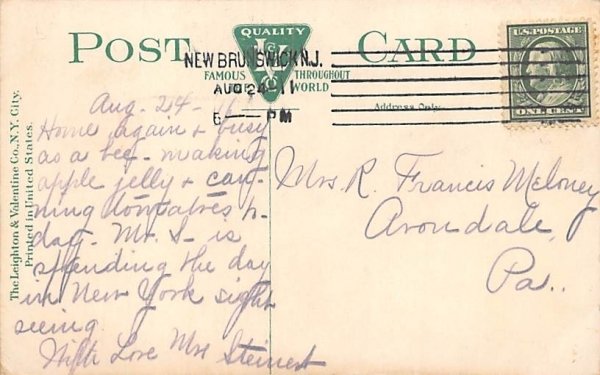 POST CARD
QUALITY
L&V Co
FAMOUS THROUGHOUT
WORLD
NEW BRUNSWICK N.J.
AUG 24 11
6 PM
U.S. POSTAGE
ONE CENT
Address Only.
The Leighton & Valentine Co., N.Y. City.
Printed in United States.
Aug. 24-
Home again & busy
as a bee - making
apple jelly & can-
ning tomatoes to-
day. Mr. S- is
spending the day
in New York sight
seeing
With Love Mrs Steinert
Mrs. R. Francis Meloney
Avondale,
Pa..